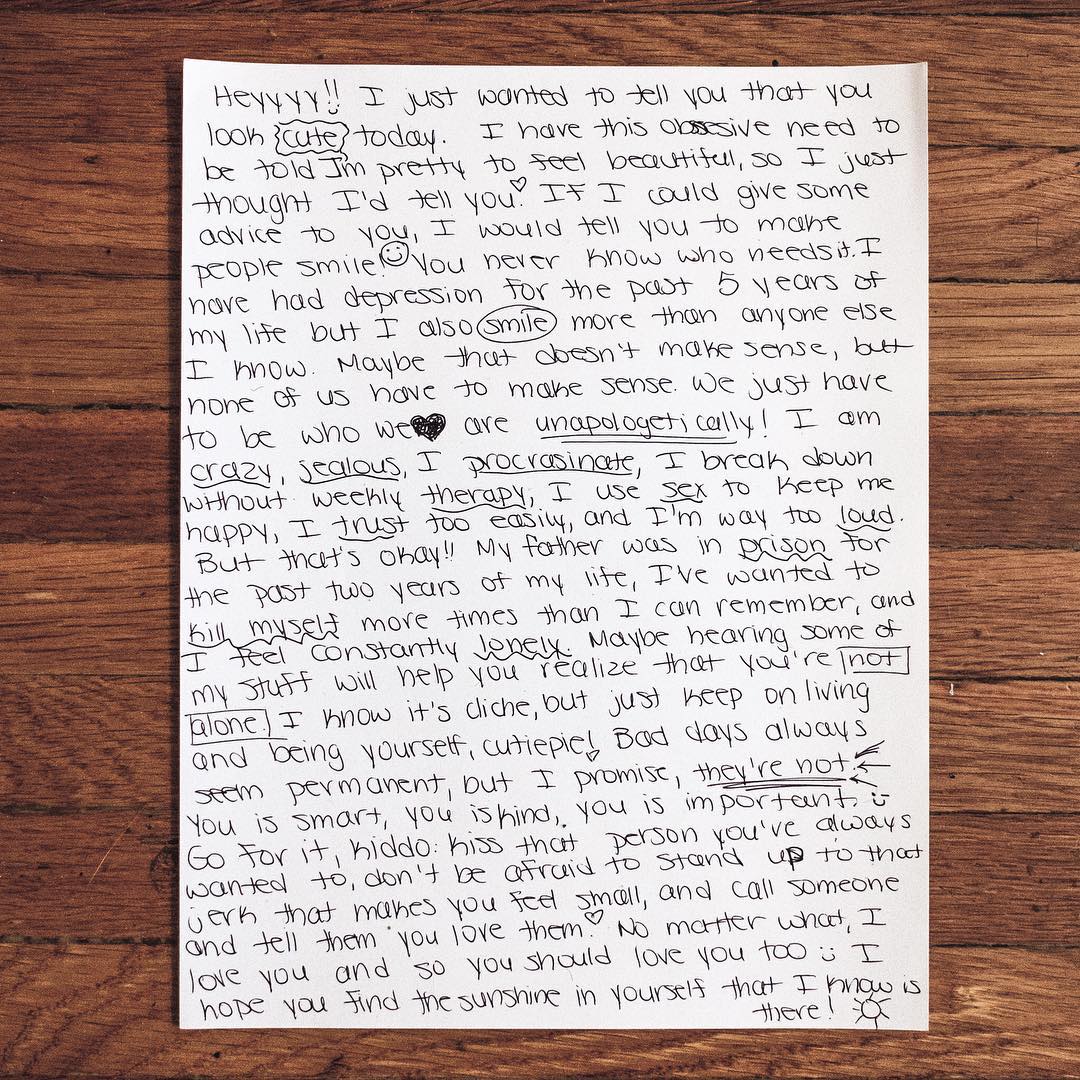 Heyyyy!! I just wanted to tell you that you
look cute today. I have this obssesive need to
be told I'm pretty to feel beautiful, so I just
thought I'd tell you! If I could give some
advice to you, I would tell you to make
people smile! You never know who needs it. I
have had depression for the past 5 years of
my life but I also smile more than anyone else
I know. Maybe that doesn't make sense, but
none of us have to make sense. We just have
to be who we are unapologetically! I am
crazy, jealous, I procrasinate, I break down
without weekly therapy, I use sex to keep me
happy, I trust too easily, and I'm way too loud.
But that's okay!! My father was in prison for
the past two years of my life, I've wanted to
kill myself more times than I can remember, and
I feel constantly lonely. Maybe hearing some of
my stuff will help you realize that you're not
alone. I know it's cliche, but just keep on living
and being yourself, cutiepie! Bad days always
seem permanent, but I promise, they're not.
You is smart, you is kind, you is important. :)
Go for it, kiddo: kiss that person you've always
wanted to, don't be afraid to stand up to that
jerk that makes you feel small, and call someone
and tell them you love them! No matter what, I
love you and so you should love you too :) I
hope you find the sunshine in yourself that I know is
there!